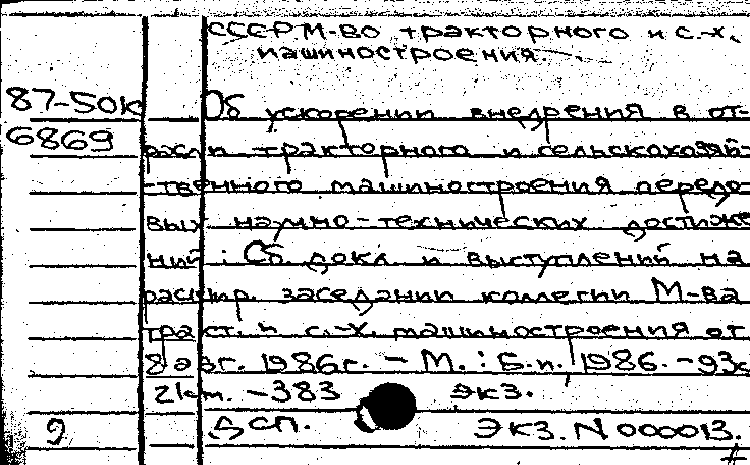 СССР. М-во тракторного и с.-х.
машиностроения.
87-50к Об ускорении внедрения в от-
6869 расли тракторного и сельскохозяй-
ственного машиностроения передо-
вых научно-технических достиже
ний: Сб. докл. и выступлений на
расшир. заседании коллегии М-ва
тракт. и с.-х. машиностроения от
8 авг. 1986 г. - М. : Б.и., 1986. - 93с
21 см. - 383 экз.
9 ДСП. Экз. N 000013.